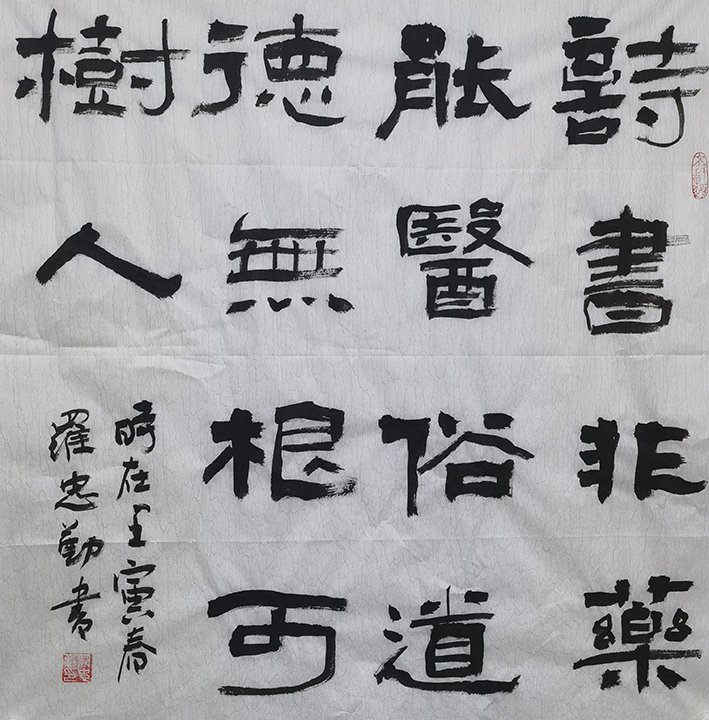 詩書非藥
能醫俗道
德無根可
樹人
時在壬寅春
羅忠勤書